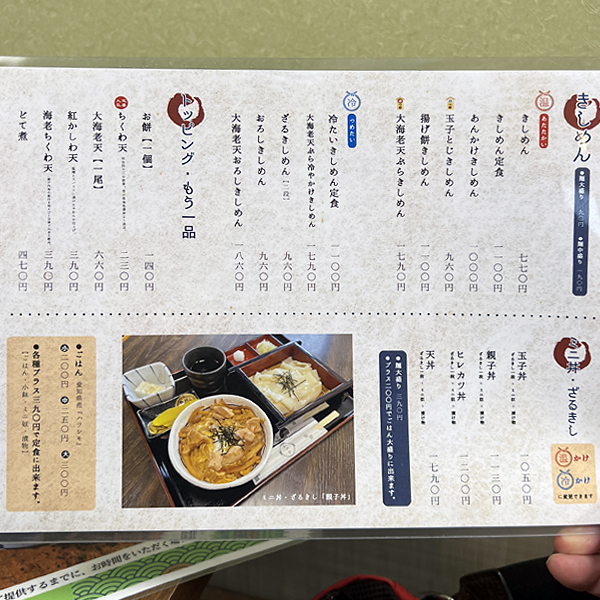 きしめん
●麺大盛り 三九〇円
●麺中盛り 一九〇円
温
あたたかい
きしめん 七七〇円
きしめん定食 一一〇〇円
あんかけきしめん
玉子とじきしめん 九六〇円
揚げ餅きしめん 一一〇〇円
大海老天ぷらきしめん 一七九〇円
冷
つめたい
冷たいきしめん定食 一一〇〇円
大海老天ぷら冷やかけきしめん 一七九〇円
ざるきしめん【二段】 九六〇円
おろしきしめん 九六〇円
大海老天おろしきしめん 一八六〇円
トッピング・もう一品
お餅【一個】 一四〇円
ちくわ天 二三〇円
大海老天【一尾】 六六〇円
紅かしわ天 三九〇円
海老ちくわ天 三九〇円
どて煮 四七〇円
ミニ丼・ざるきし
温かけ
冷かけ
に変更できます
玉子丼 一〇五〇円
親子丼 一一三〇円
ヒレカツ丼 一二〇〇円
天丼 一七九〇円
●麺大盛り 三九〇円
●プラス二〇〇円でごはん大盛りに出来ます。
ミニ丼・ざるきし「親子丼」
●ごはん 愛知県産『ハツシモ』
小 二〇〇円 中 二五〇円 大 三〇〇円
●各種プラス三九〇円で定食に出来ます。
【ごはん・小鉢・ミニ奴・漬物】
提供するまでに、お時間をいただく場